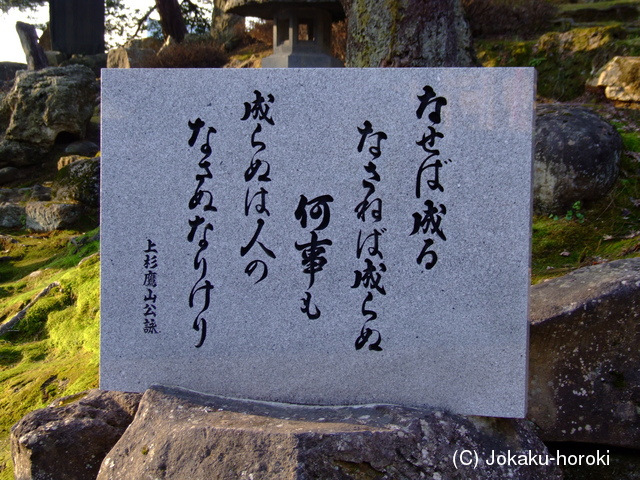 なせば成る
なさねば成らぬ
何事も
成らぬは人の
なさぬなりけり
上杉鷹山公詠
(C) Jokaku-horoki